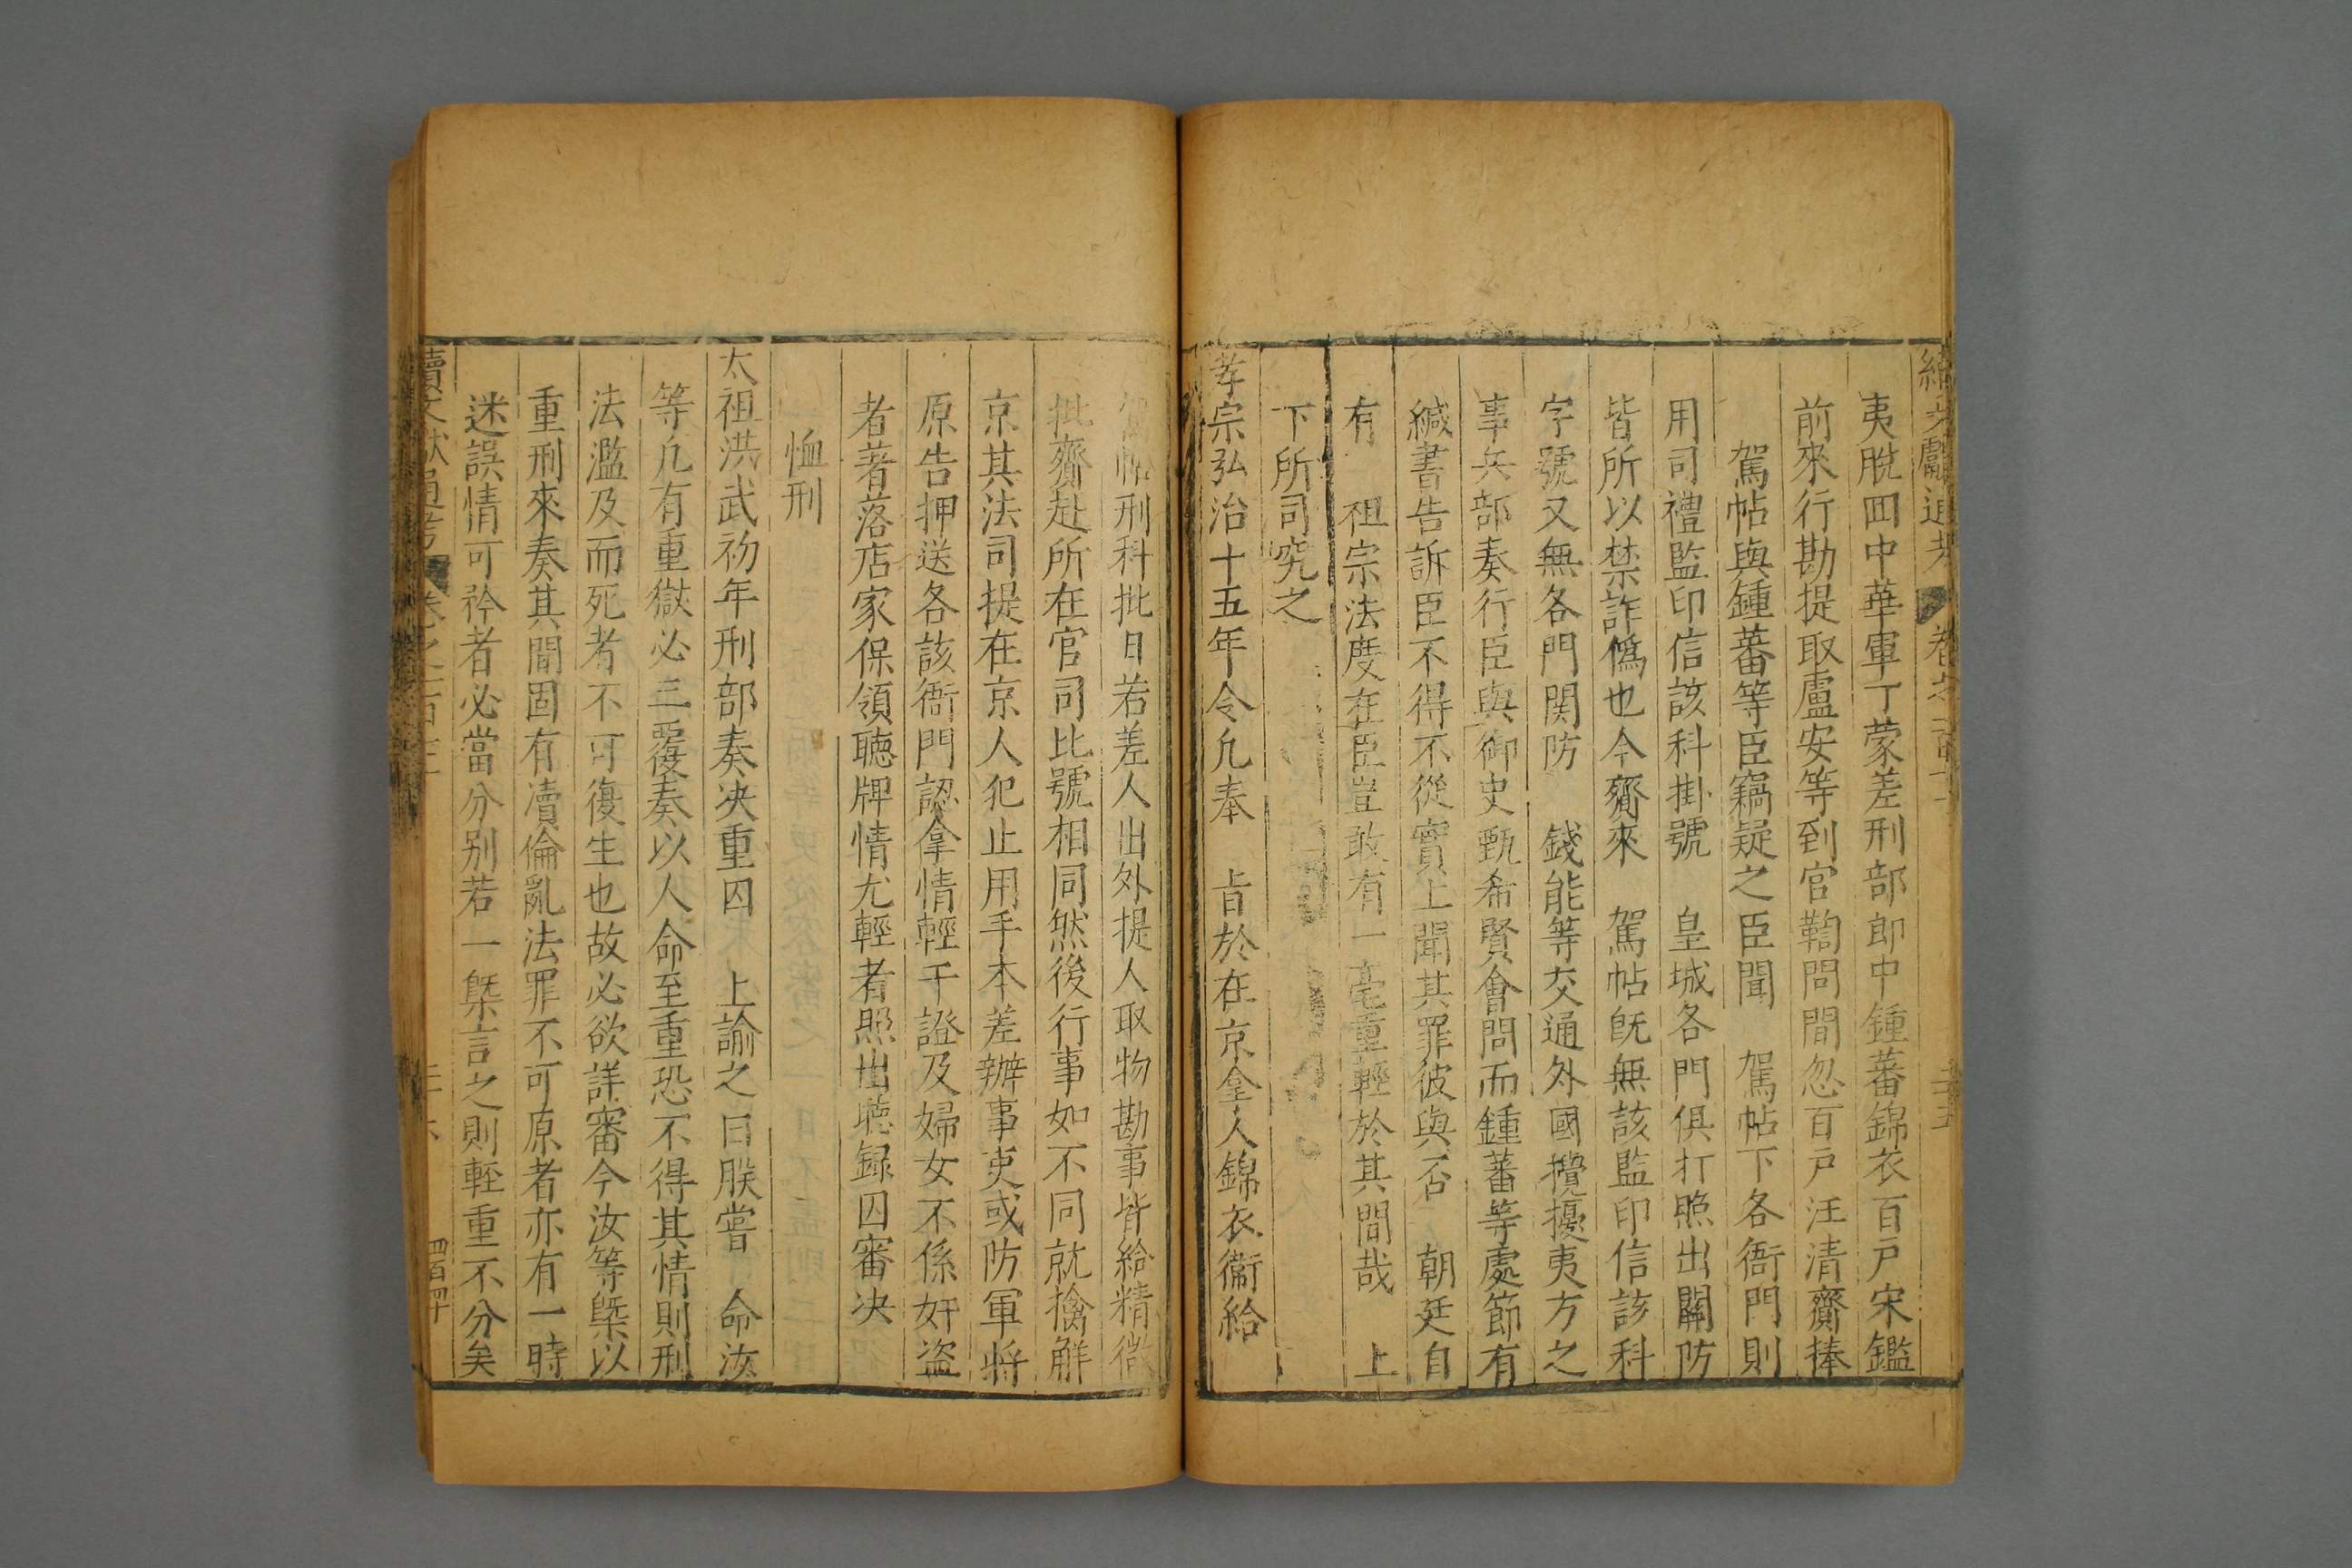 夷脫回中華軍丁蒙差刑部郎中鍾蕃錦衣百戸宋鑑
前來行勘提取盧安等到官鞫問間忽百戸汪清齎捧
駕帖與鍾蕃等臣竊疑之臣聞 駕帖下各衙門則
用司禮監印信該科掛號 皇城各門俱打照出關防
皆所以禁詐僞也今齎來 駕帖旣無該監印信該科
字號又無各門関防 錢能等交通外國攪擾夷方之
事兵部奏行臣與御史甄希賢會問而鍾蕃等處節有
緘書告訴臣不得不從實上聞其罪彼與否 朝廷自
有 祖宗法度在臣豈敢有一毫重輕於其間哉 上
下所司究之
孝宗弘治十五年令凡奉 旨於在京拿人錦衣衞給
帖刑科批日若差人出外提人取物勘事皆給精微
批齎赴所在官司比號相同然後行事如不同就擒解
京其法司提在京人犯止用手本差辦事吏或防軍將
原告押送各該衙門認拿情輕干證及婦女不係奸盗
者著落店家保領聴牌情尤輕者照出聴録囚審决
恤刑
太祖洪武初年刑部奏决重囚 上諭之曰朕嘗 命汝
等凢有重獄必三覆奏以人命至重恐不得其情則刑
法濫及而死者不可復生也故必欲詳審今汝等槩以
重刑來奏其間固有凟倫亂法罪不可原者亦有一時
迷誤情可矜者必當分别若一槩言之則輕重不分矣
續文獻通考 卷之一百三
四百四十